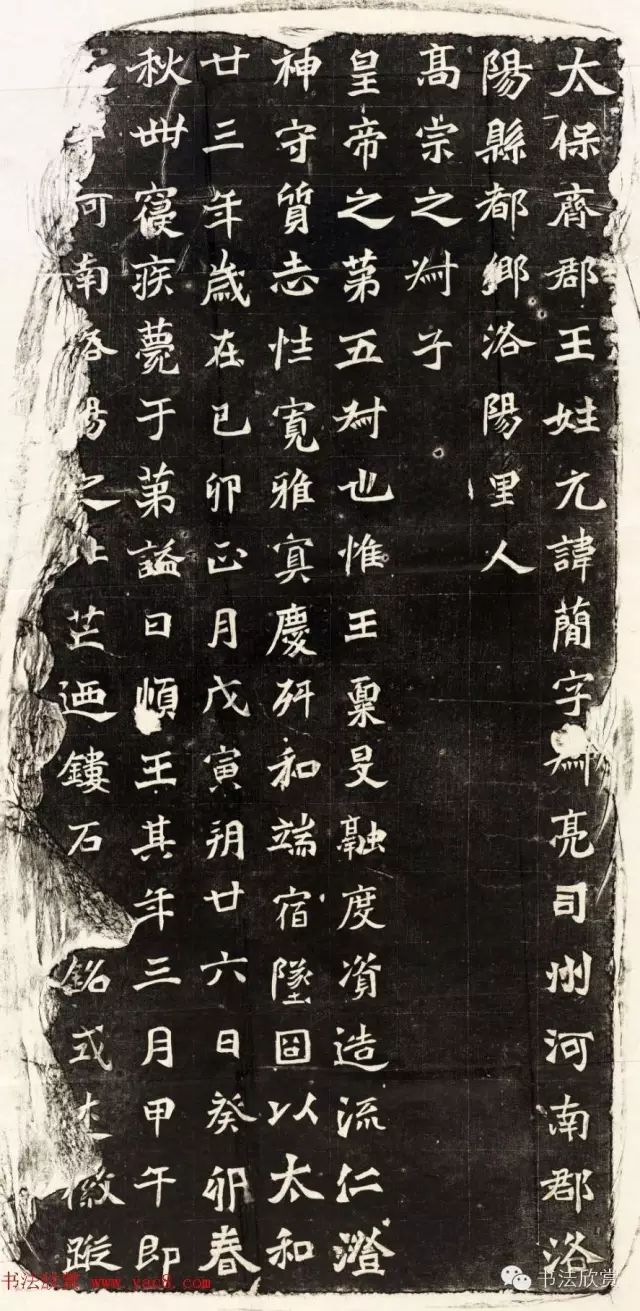 太保齊郡王姓元諱蕳字叔亮司州河南郡洛
陽縣都鄉洛陽里人
高宗之叔子
皇帝之第五叔也惟王稟旻融度資造流仁澄
神守質志性寬雅冥慶舛和端宿墜固以太和
廿三年歲在己卯正月戊寅朔廿六日癸卯春
秋卌寑疾薨于第謚曰順王其年三月甲午即
河南洛陽之北芒迺鏤石銘式述徽蹤
书法欣赏 www.yac8.com
书法欣赏